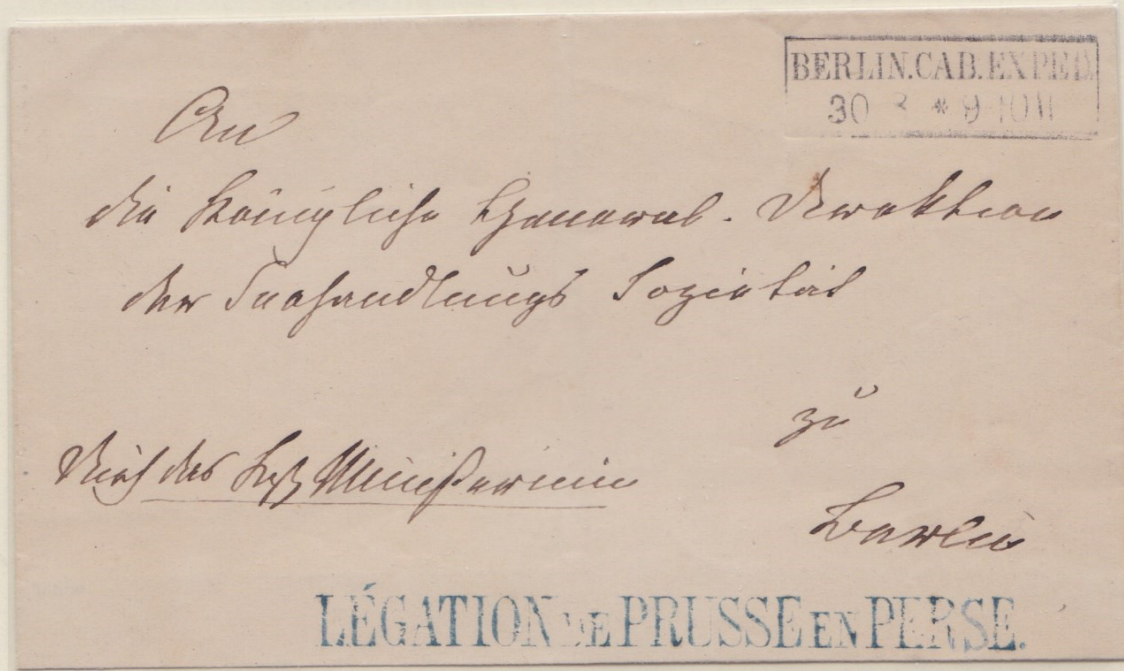 BERLIN.CAB.EXPED.
30 3 * 9-10 V
An
die Königliche General-Direktion
der Seehandlungs Sozietät
zu
Berlin
Durch das Kgl. Ministerium
LÉGATION DE PRUSSE EN PERSE.